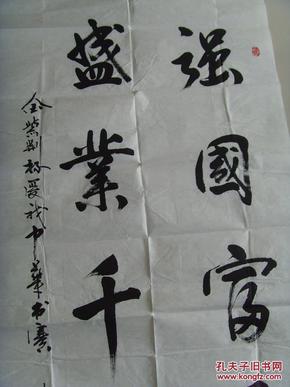 强國富
盛業千
金紫荆杯爱我中華书
孔夫子旧书网
kongfz.com